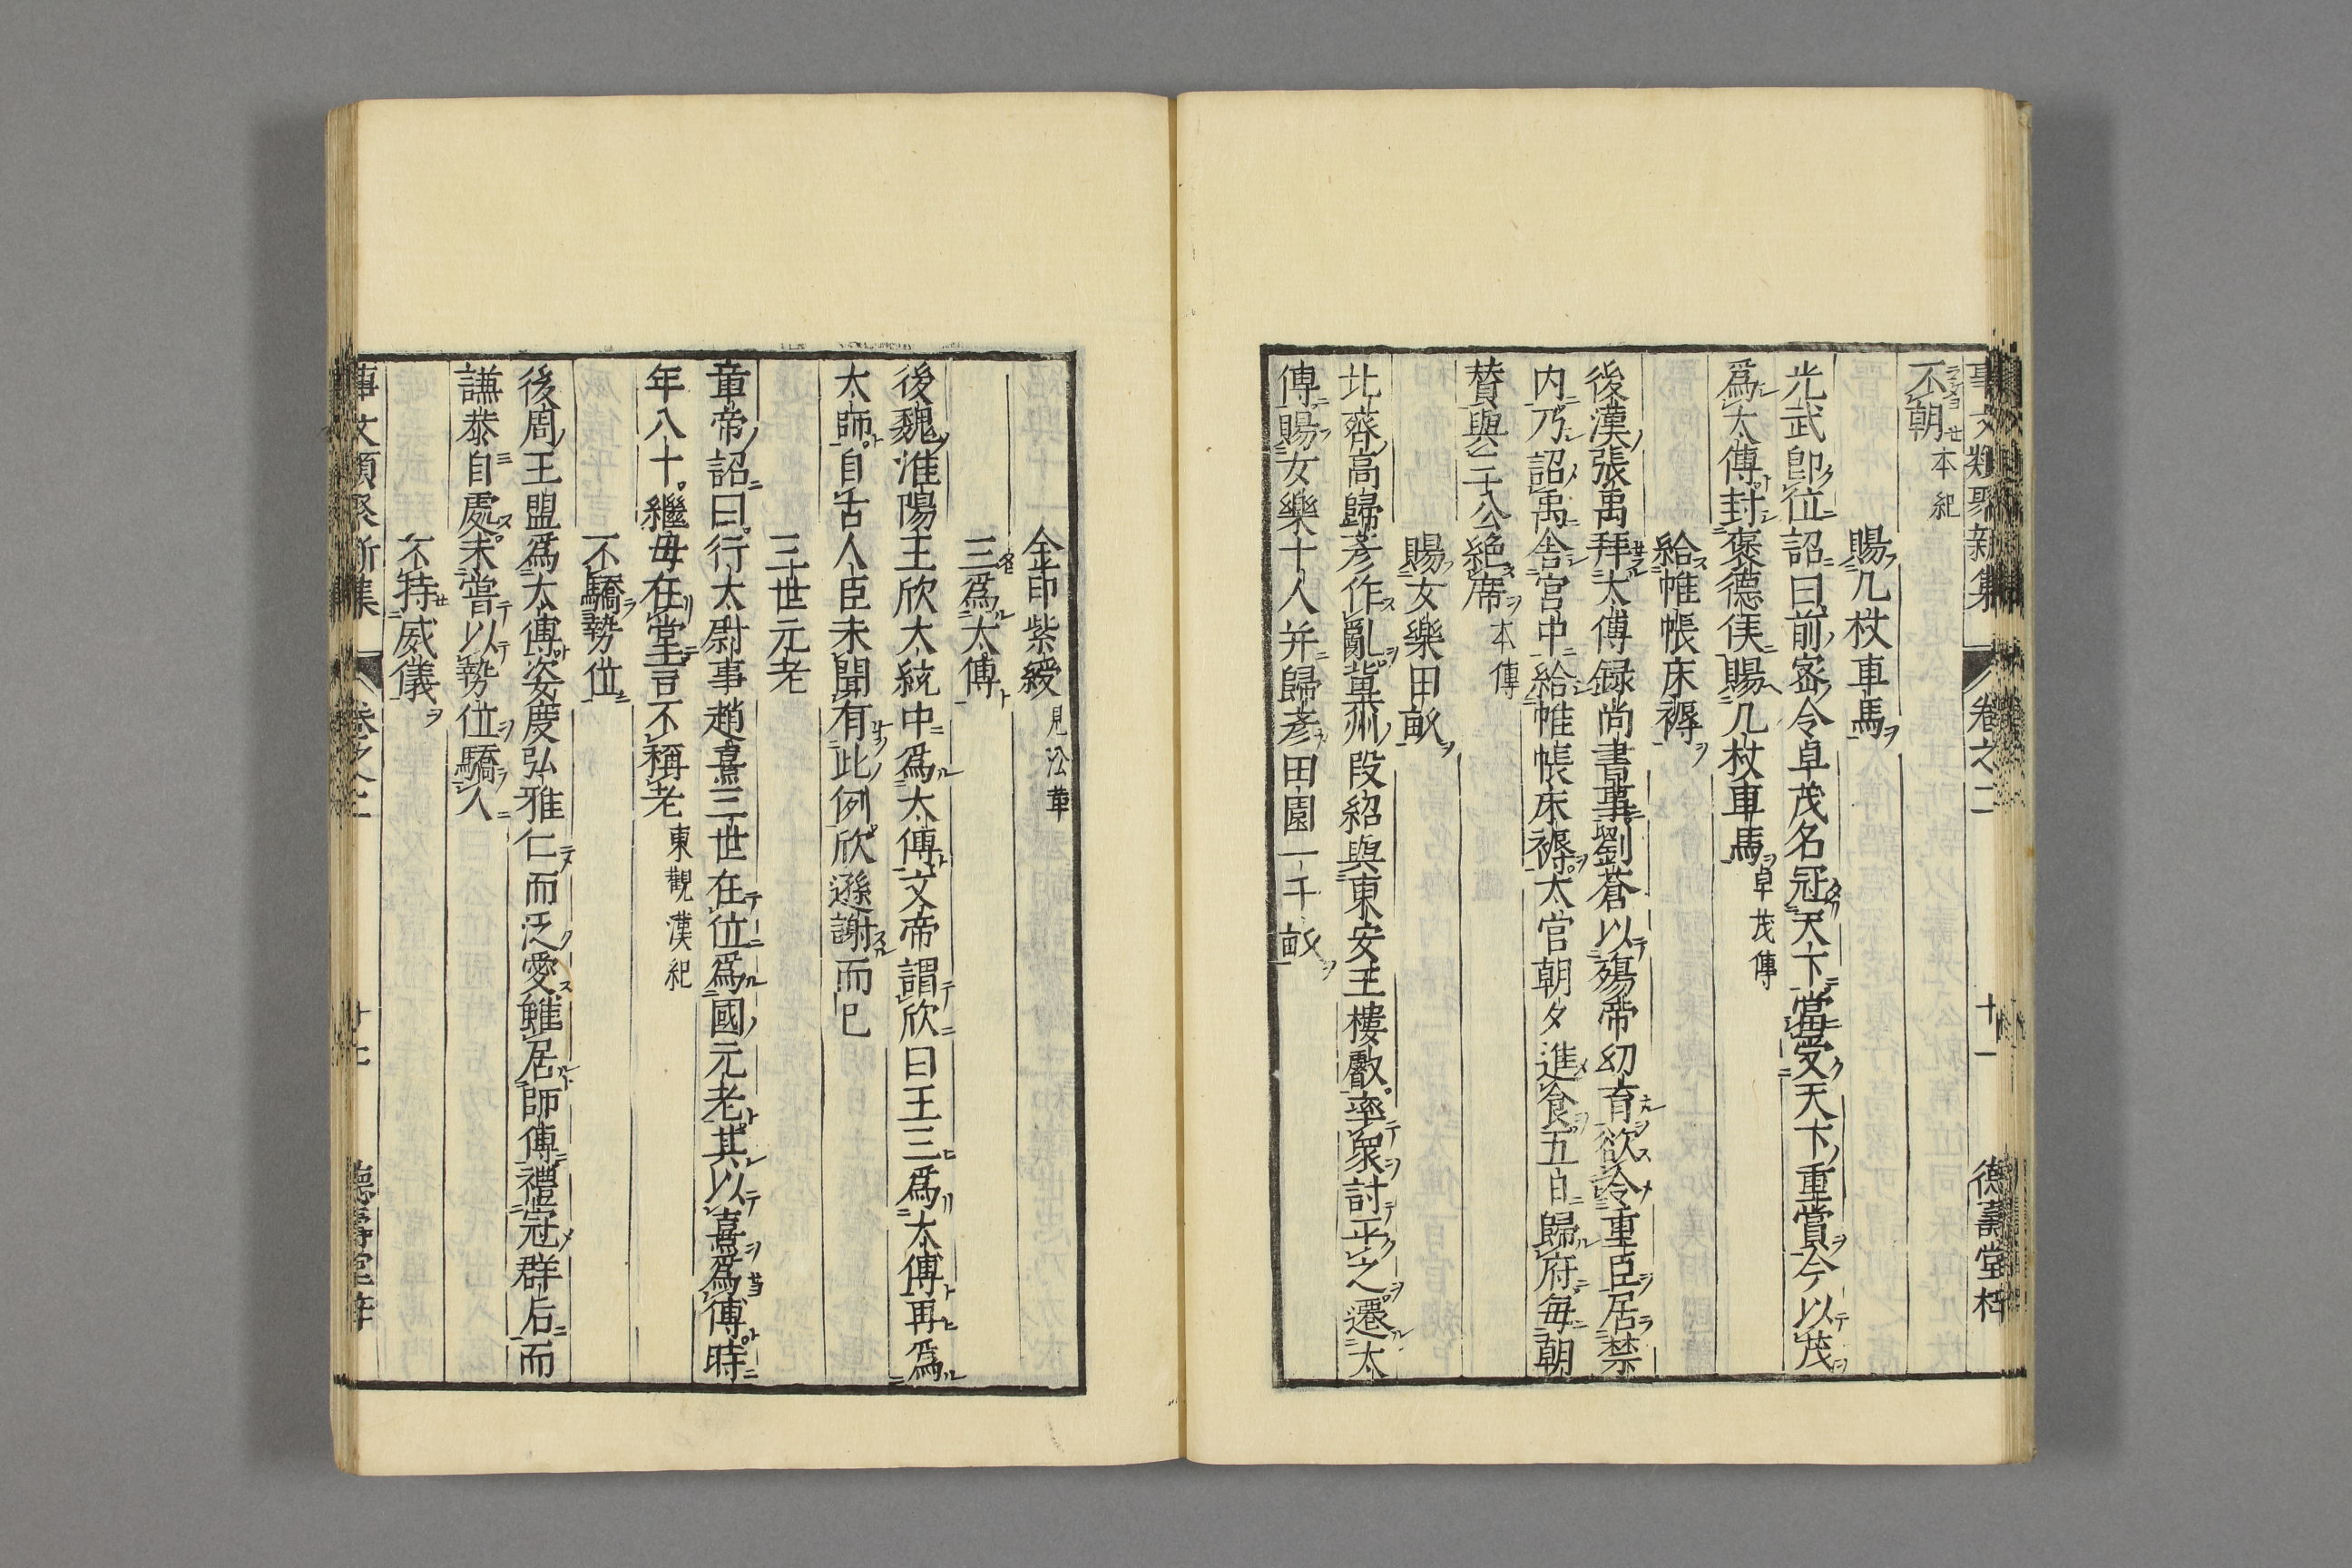 事文類聚新集 卷之二 十一 德壽堂梓
不朝 本紀
賜几杖車馬
光武卽位詔曰前密令卓茂名冠天下當受天下重賞今以茂
爲太傅封褒德侯賜几杖車馬 卓茂傳
給帷帳床褥
後漢張禹拜太傅録尚書事劉蒼以殤帝幼育欲令重臣居禁
内乃詔禹舎宮中給帷帳床褥太官朝夕進食五日歸府毎朝
賛與三公絶席 本傳
賜女樂田畝
北齊高歸彦作亂冀州段紹與東安王樓叡率衆討平之遷太
傅賜女樂十人并歸彦田園一千畝
金印紫綬 見沿革
三爲太傅
後魏淮陽王欣大統中爲太傅文帝謂欣曰王三爲太傅再爲
太師自古人臣未聞有此例欣遜謝而已
三世元老
章帝詔曰行太尉事趙憙三世在位爲國元老其以憙爲傅時
年八十繼母在堂言不稱老 東觀漢紀
不驕勢位
後周王盟爲太傅姿度弘雅仁而泛愛雖居師傅禮冠群后而
謙恭自處未嘗以勢位驕人
不持威儀
事文類聚新集 卷之二 德壽堂梓